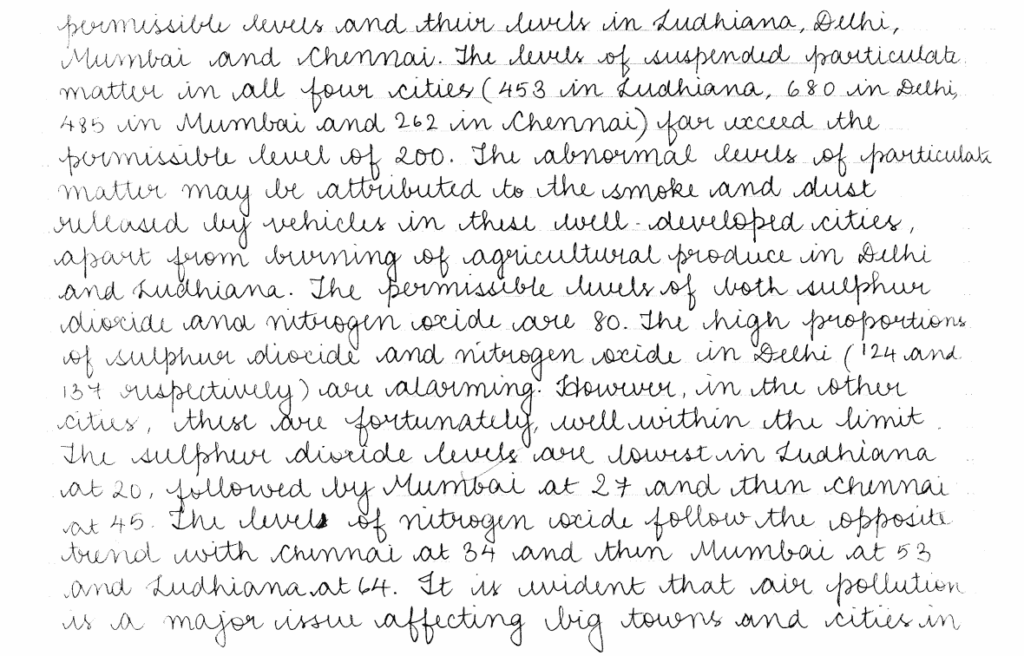 permissible levels and their levels in Ludhiana, Delhi,
Mumbai and Chennai. The levels of suspended particulate
matter in all four cities (453 in Ludhiana, 680 in Delhi,
485 in Mumbai and 262 in Chennai) far exceed the
permissible level of 200. The abnormal levels of particulate
matter may be attributed to the smoke and dust
released by vehicles in these well-developed cities,
apart from burning of agricultural produce in Delhi
and Ludhiana. The permissible levels of both sulphur
dioxide and nitrogen oxide are 80. The high proportions
of sulphur dioxide and nitrogen oxide in Delhi (124 and
137 respectively) are alarming. However, in the other
cities, these are fortunately, well within the limit.
The sulphur dioxide levels are lowest in Ludhiana
at 20, followed by Mumbai at 27 and then Chennai
at 45. The levels of nitrogen oxide follow the opposite
trend with Chennai at 34 and then Mumbai at 53
and Ludhiana at 64. It is evident that air pollution
is a major issue affecting big towns and cities in